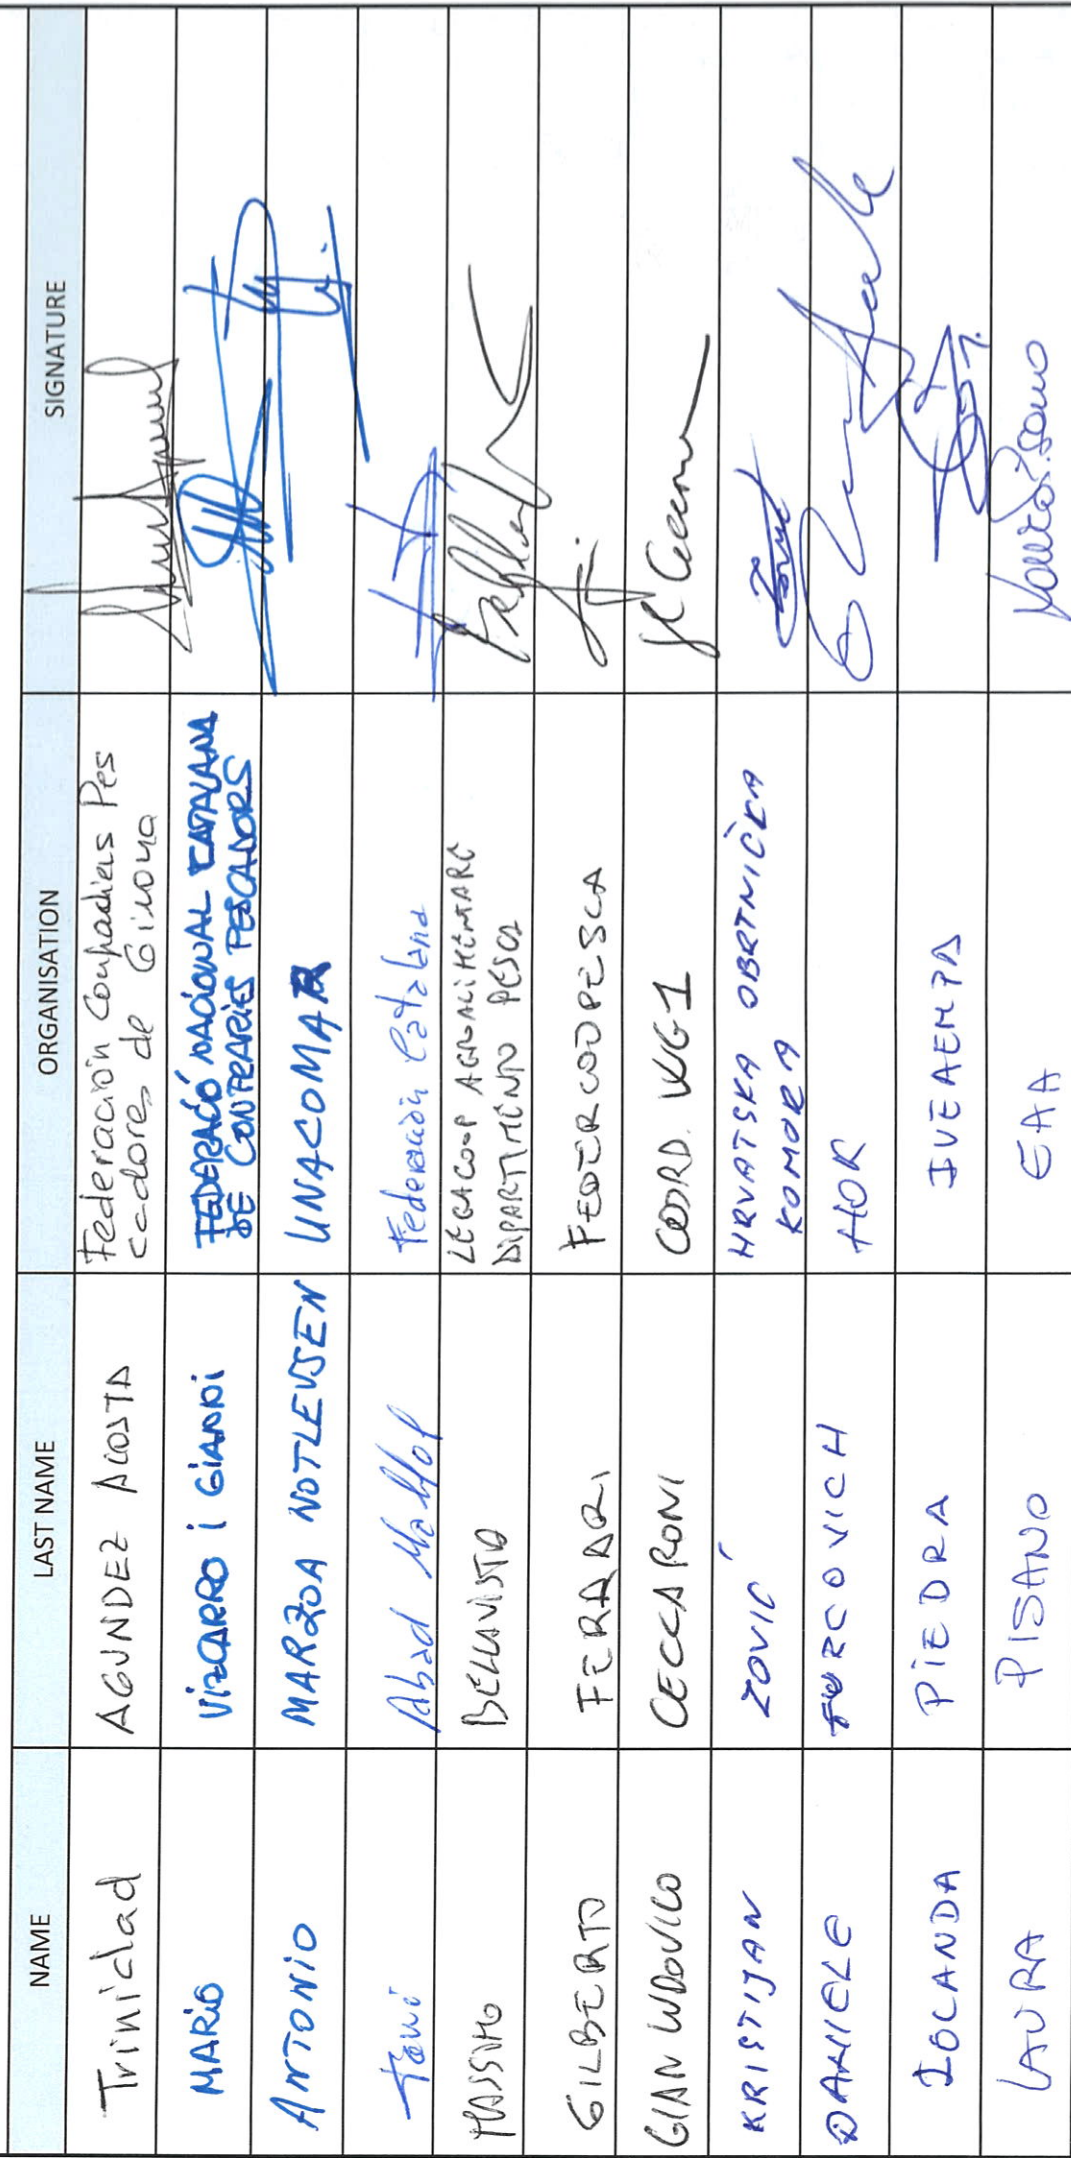 NAME LAST NAME ORGANISATION SIGNATURE
Trinidad AGUNDEZ ACOSTA Federación Cofradías Pes
cadores de Girona
MARIO VIZCARRO i GIANNI FEDERACIÓ NACIONAL CATALANA
DE CONFRARIES PESCADORS
ANTONIO MARZOA NOTLEVSEN UNACOMAR
Abad Federación Catalana
MASSIMO BELLAVISTA LEGACOOP AGROALIMENTARE
DIPARTIMENTO PESCA
GILBERTO FERRARI FEDERCOOPESCA
GIAN LUDOVICO CECCARONI COORD. WG1
KRISTIJAN ZOVIĆ HRVATSKA OBRTNIČKA
KOMORA
DANIELE TURCOVICH HOK
IOLANDA PIEDRA IVEAEMPA
LAURA PISANO EAA Laura Pisano